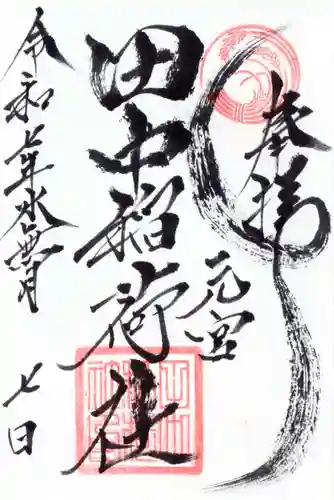 奉拝
元宮
田中稲荷社
令和七年水無月
七日